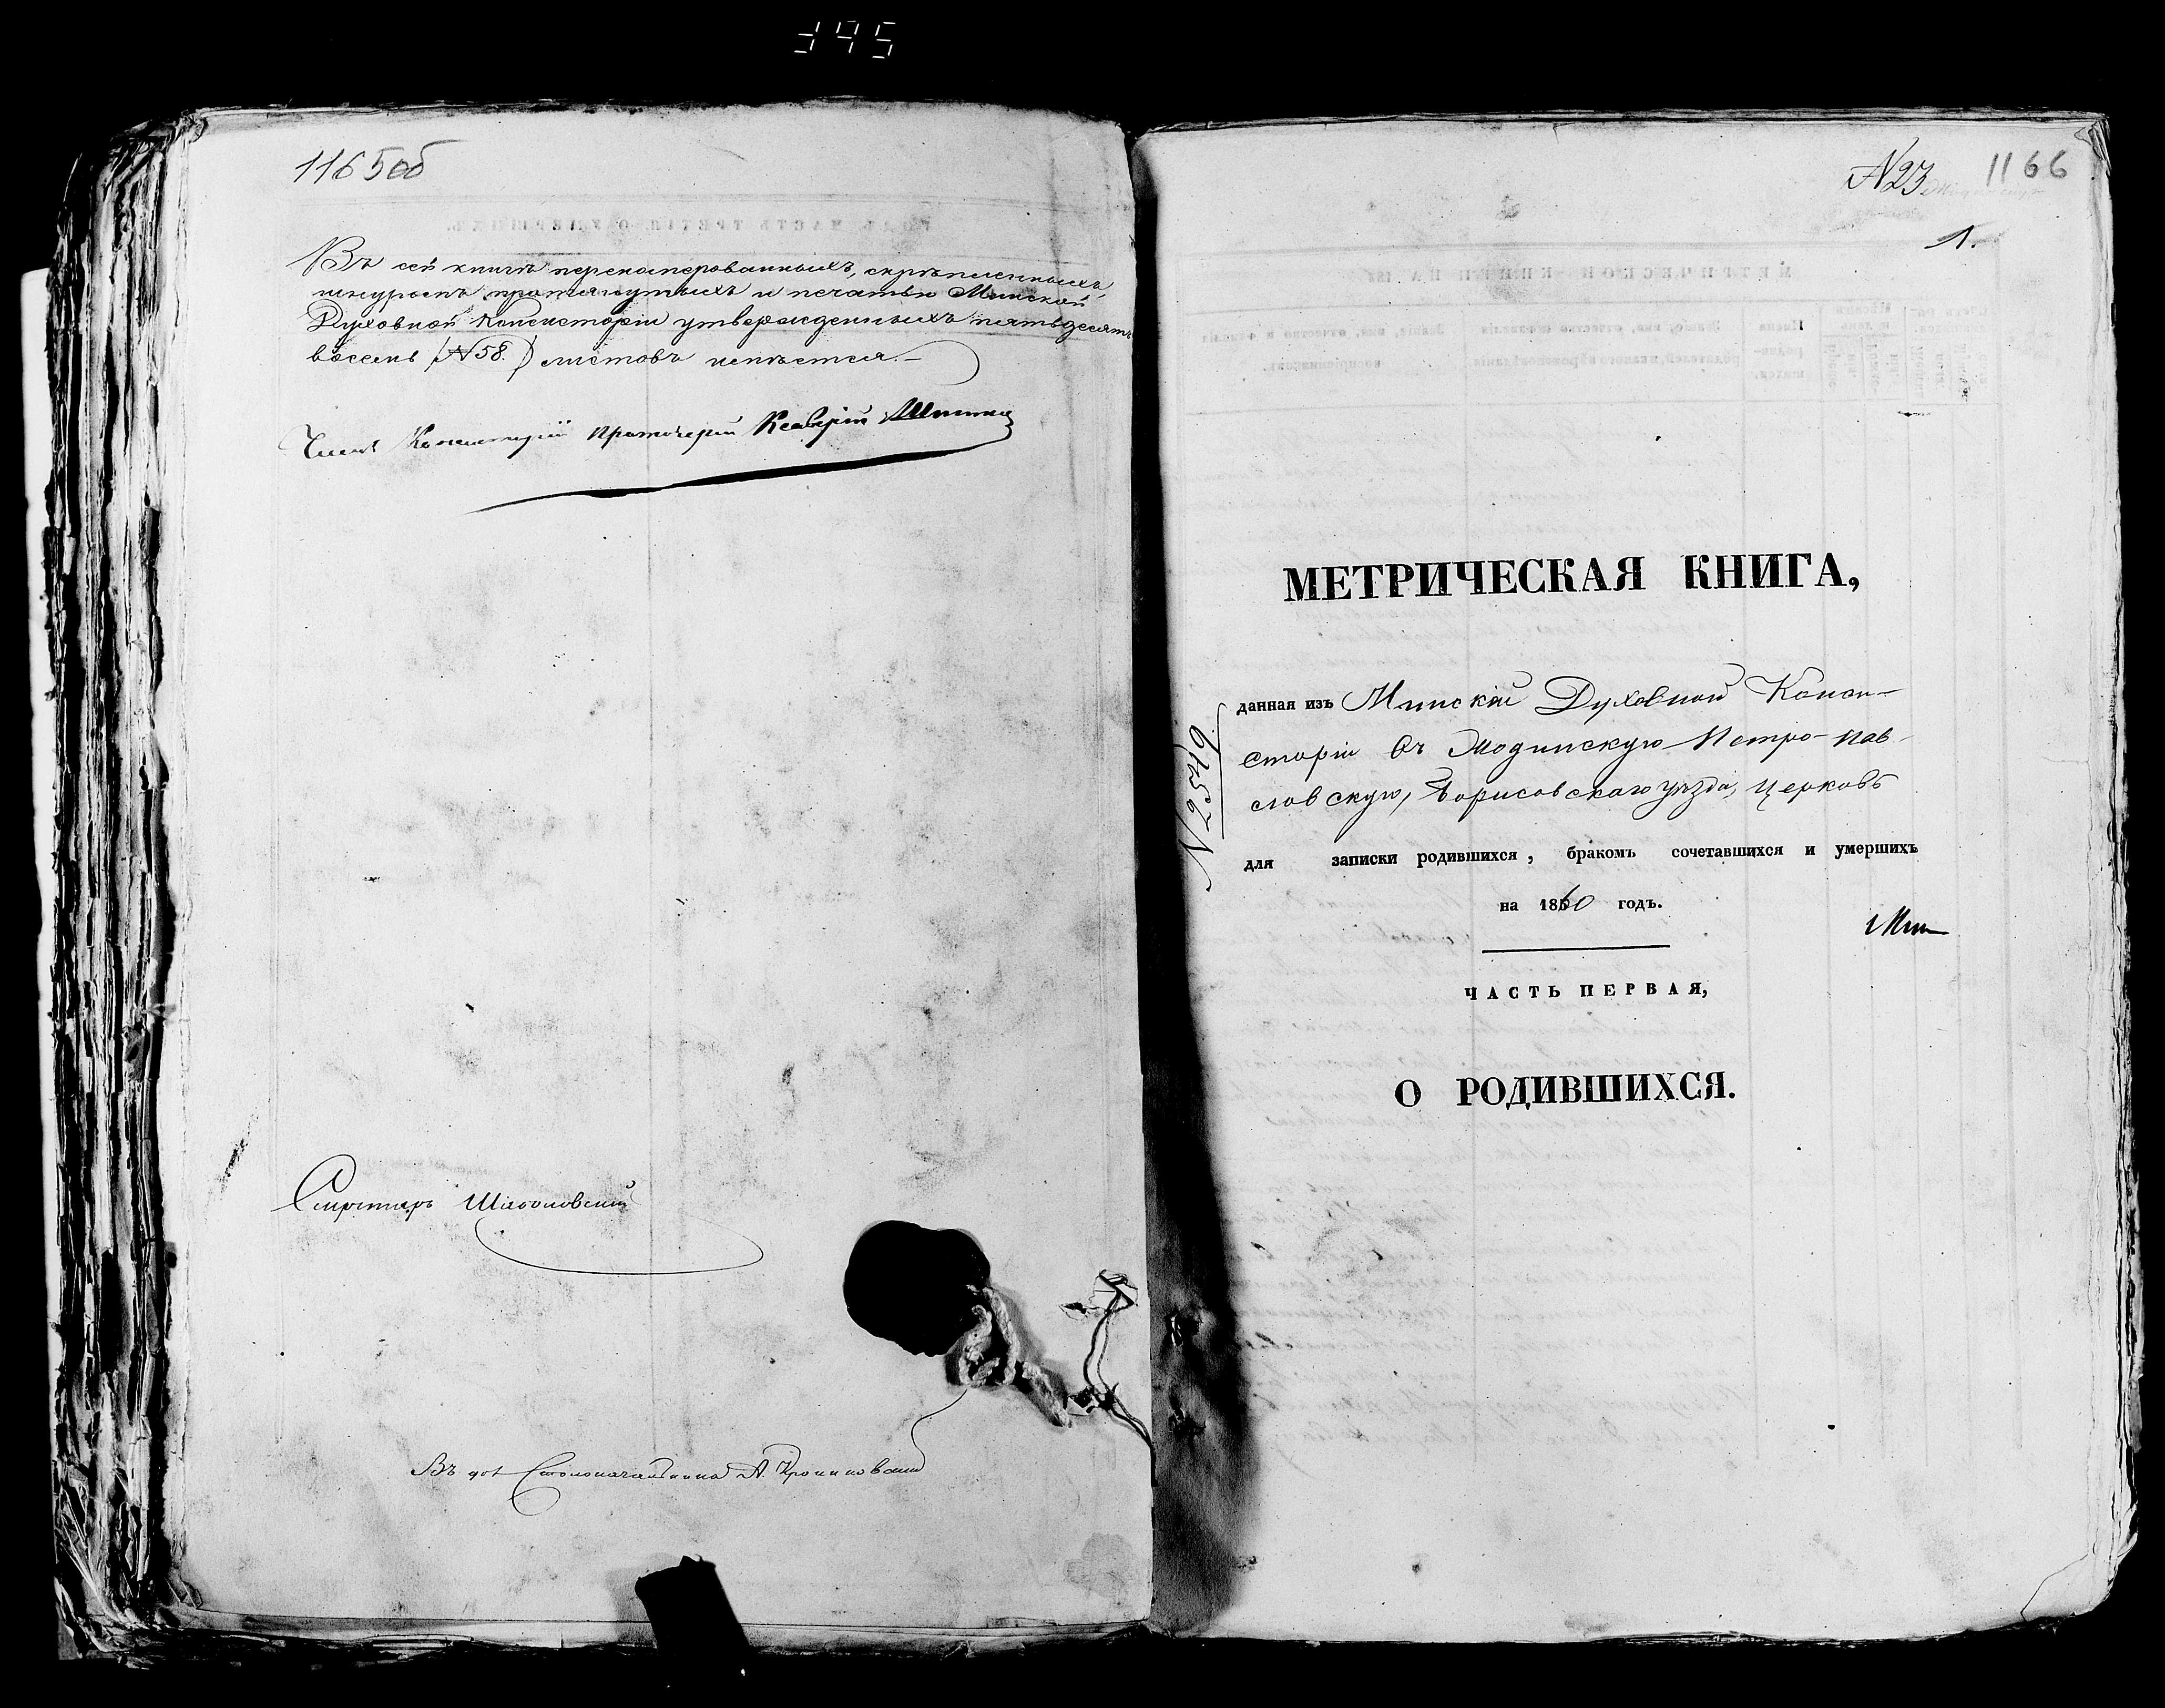 345
1165об
Въ сей книгѣ перенумерованныхъ, скрѣпленныхъ,
шнуромъ протянутыхъ и печатью Минской
Духовной Консисторіи утвержденныхъ пятьдесятъ
восемь (№58.) листовъ имѣется.—
Членъ Консисторіи Протоіерей
Секретарь
Въ дол. Столоначальника А.
№23 1166
1.
МЕТРИЧЕСКАЯ КНИГА,
данная изъ Минской Духовной Конси-
сторіи въ Лодинскую Петро-Пав-
ловскую, Борисовскаго уѣзда, Церковь
для записки родившихся, бракомъ сочетавшихся и умершихъ
на 1860 годъ.
Мин
ЧАСТЬ ПЕРВАЯ,
О РОДИВШИХСЯ.